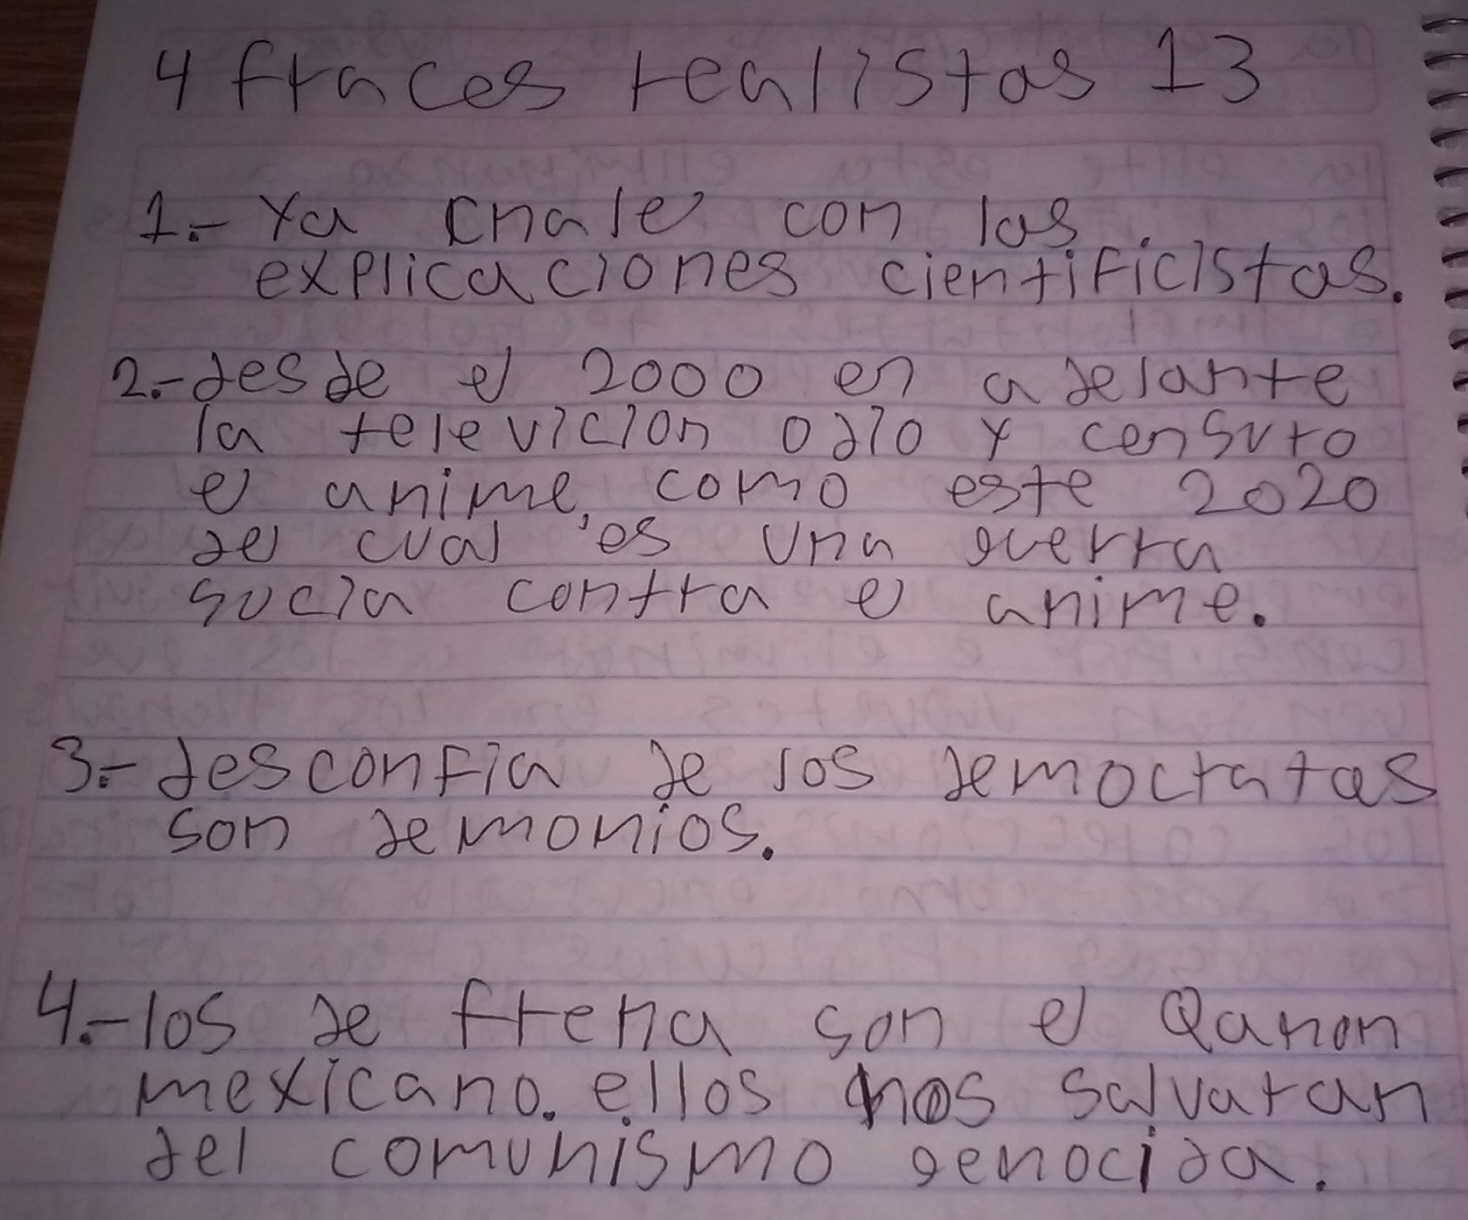 4 fraces realistas 13
1.- Ya chale con las
explicaciones cientificistas.
2.- desde el 2000 en adelante
la televicion odio y censuro
el anime, como este 2020
del cual es una guerra
sucia contra el anime.
3.- desconfia de los democratas
son demonios.
4.- los de frena son el Qanon
mexicano. ellos nos salvaran
del comunismo genocida.